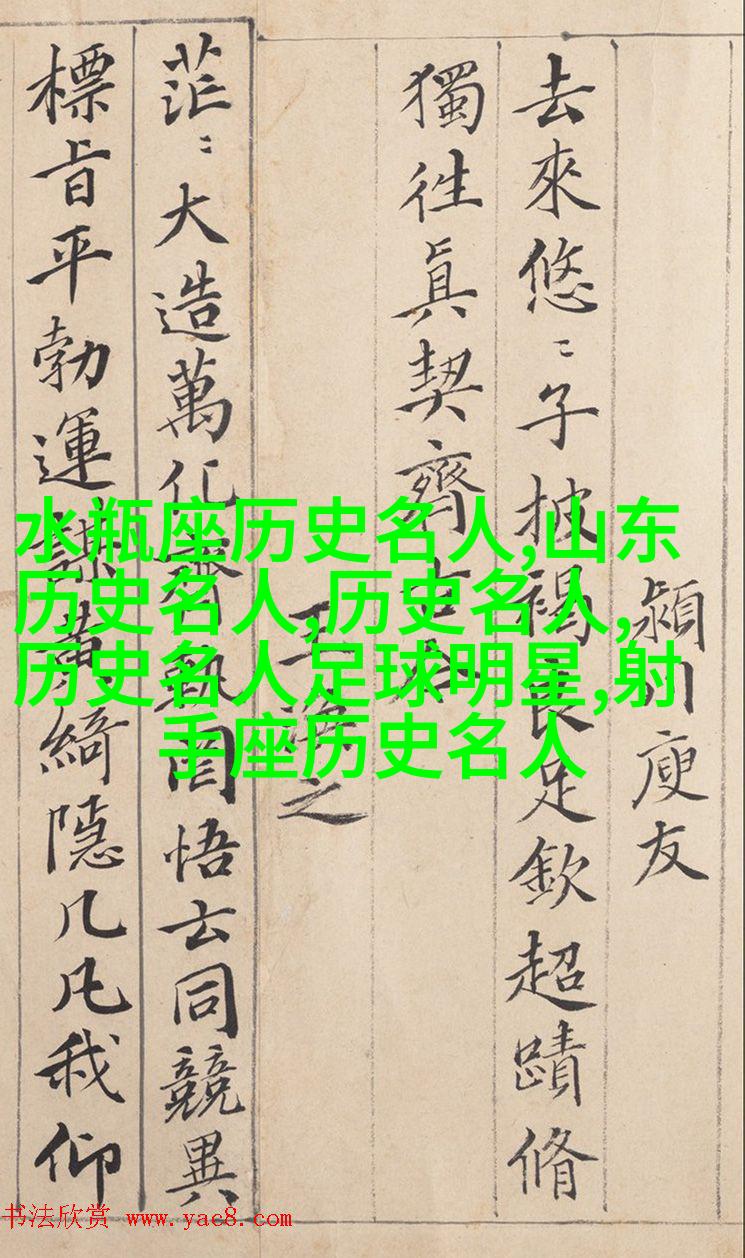 潁川庾友
去來悠〻子披褐良足欽超蹟脩
獨徃眞契齊古今
王渙之
茫〻大造萬化齊軌罔悟玄同競異
標旨平勃運謀黃綺隱几凡我仰
水瓶座历史名人,山东
历史名人,历史名人,
历史名人足球明星,射
手座历史名人
书法欣赏 www.yac8.com